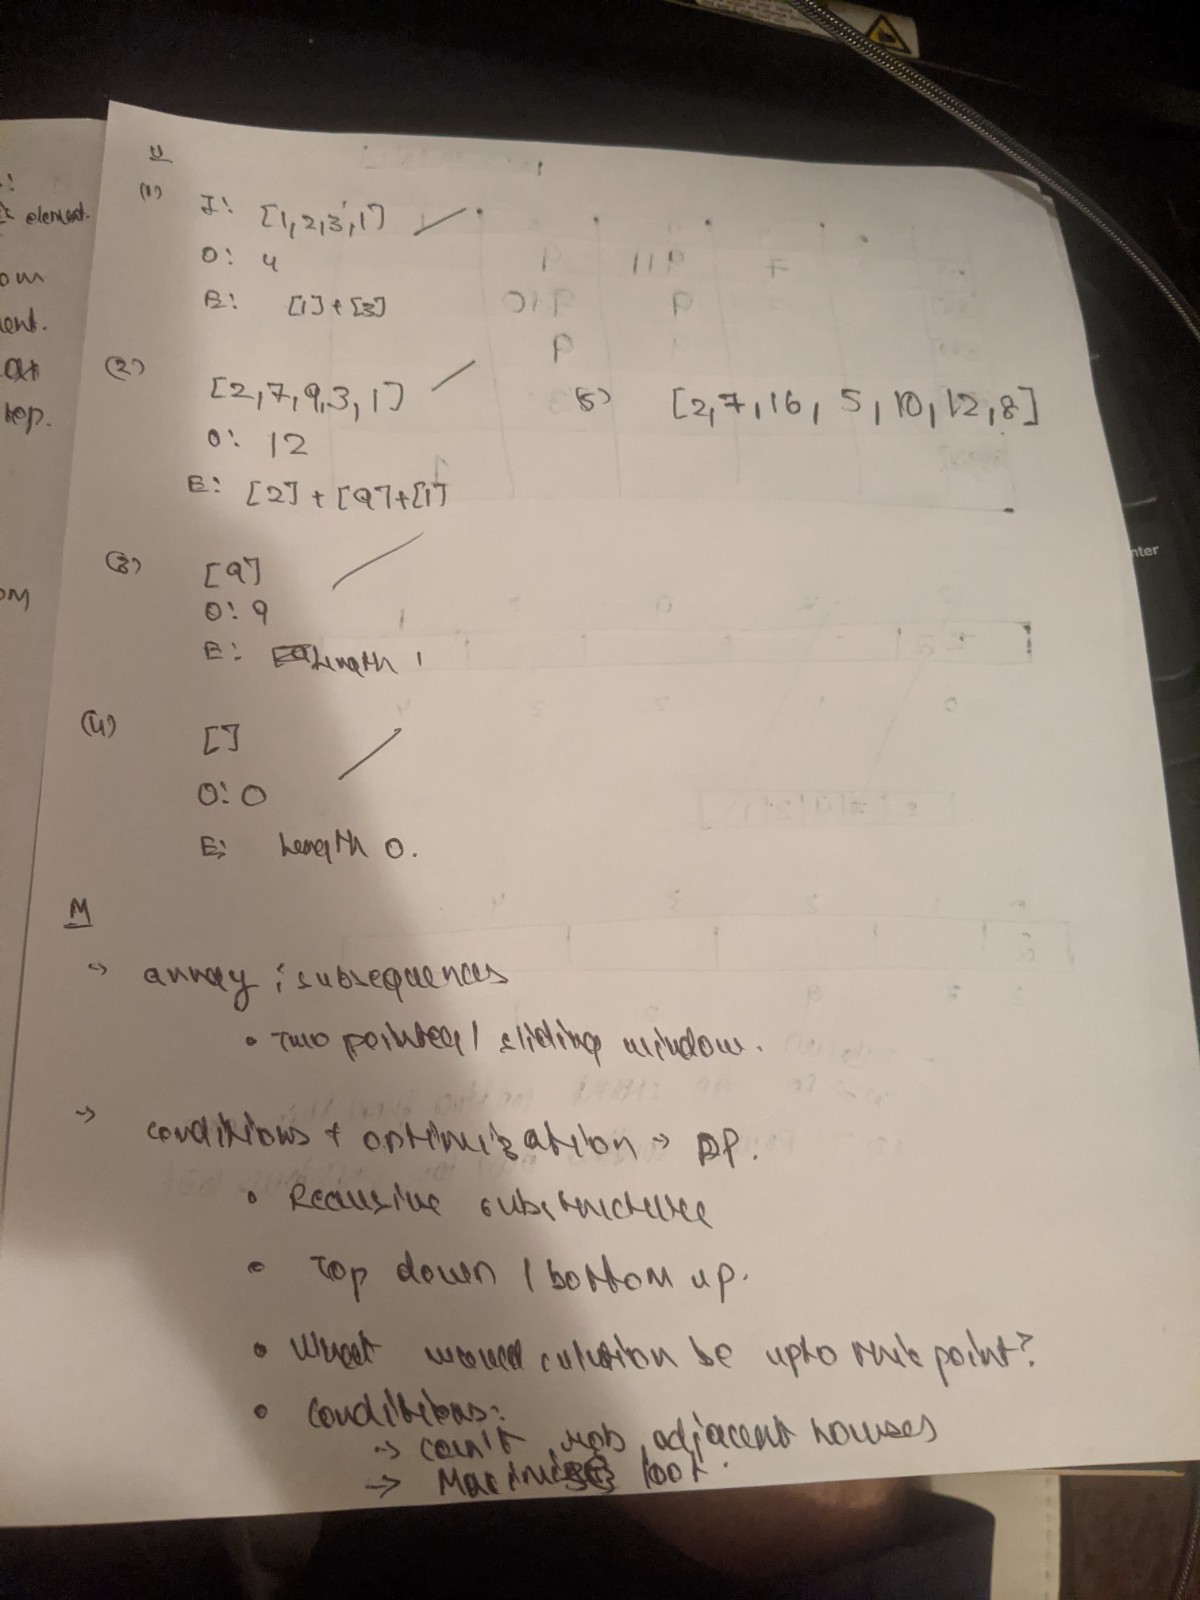 : 
element.
om
ent.
top.
OM
U
(1)
I: [1,2,3,1]
O: 4
E: [1] + [3]
(2)
[2,7,9,3,1]
O: 12
E: [2] + [9]+[1]
(3)
[9]
O: 9
E: Length 1
(4)
[]
O: 0
E: Length 0.
(5) [2,7,16, 5,10,12,8]
M
-> array ; subsequences
• Two pointer / sliding window.
-> conditions + optimization -> DP.
• Recursive substructure
• Top down / bottom up.
• What would solution be upto this point?
• Conditions:
-> can't rob adjacent houses
-> Maximise loot.
nter